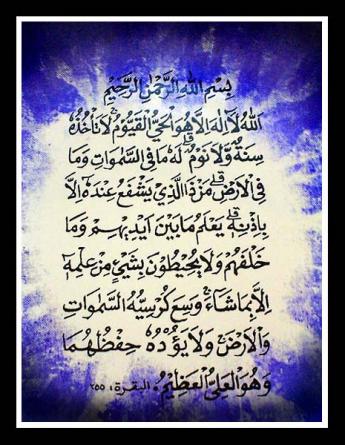 بِسْمِ اللهِ الرَّحْمٰنِ الرَّحِيْمِ
اَللهُ لَآ اِلٰهَ اِلَّا هُوَ اَلْحَيُّ الْقَيُّوْمُ ۚ لَا تَأْخُذُهٗ
سِنَةٌ وَّلَا نَوْمٌ ۗ لَهٗ مَا فِى السَّمٰوَاتِ وَمَا
فِى الْاَرْضِ ۗ مَنْ ذَا الَّذِيْ يَشْفَعُ عِنْدَهٗٓ اِلَّا
بِاِذْنِهٖ ۗ يَعْلَمُ مَا بَيْنَ اَيْدِيْهِمْ وَمَا
خَلْفَهُمْ وَلَا يُحِيْطُوْنَ بِشَيْءٍ مِنْ عِلْمِهٖٓ
اِلَّا بِمَا شَآءَ ۚ وَسِعَ كُرْسِيُّهُ السَّمٰوَاتِ
وَالْاَرْضَ ۚ وَلَا يَؤُدُهٗ حِفْظُهُمَا
وَهُوَ الْعَلِيُّ الْعَظِيْمُ. البقرة: ٢٥٥